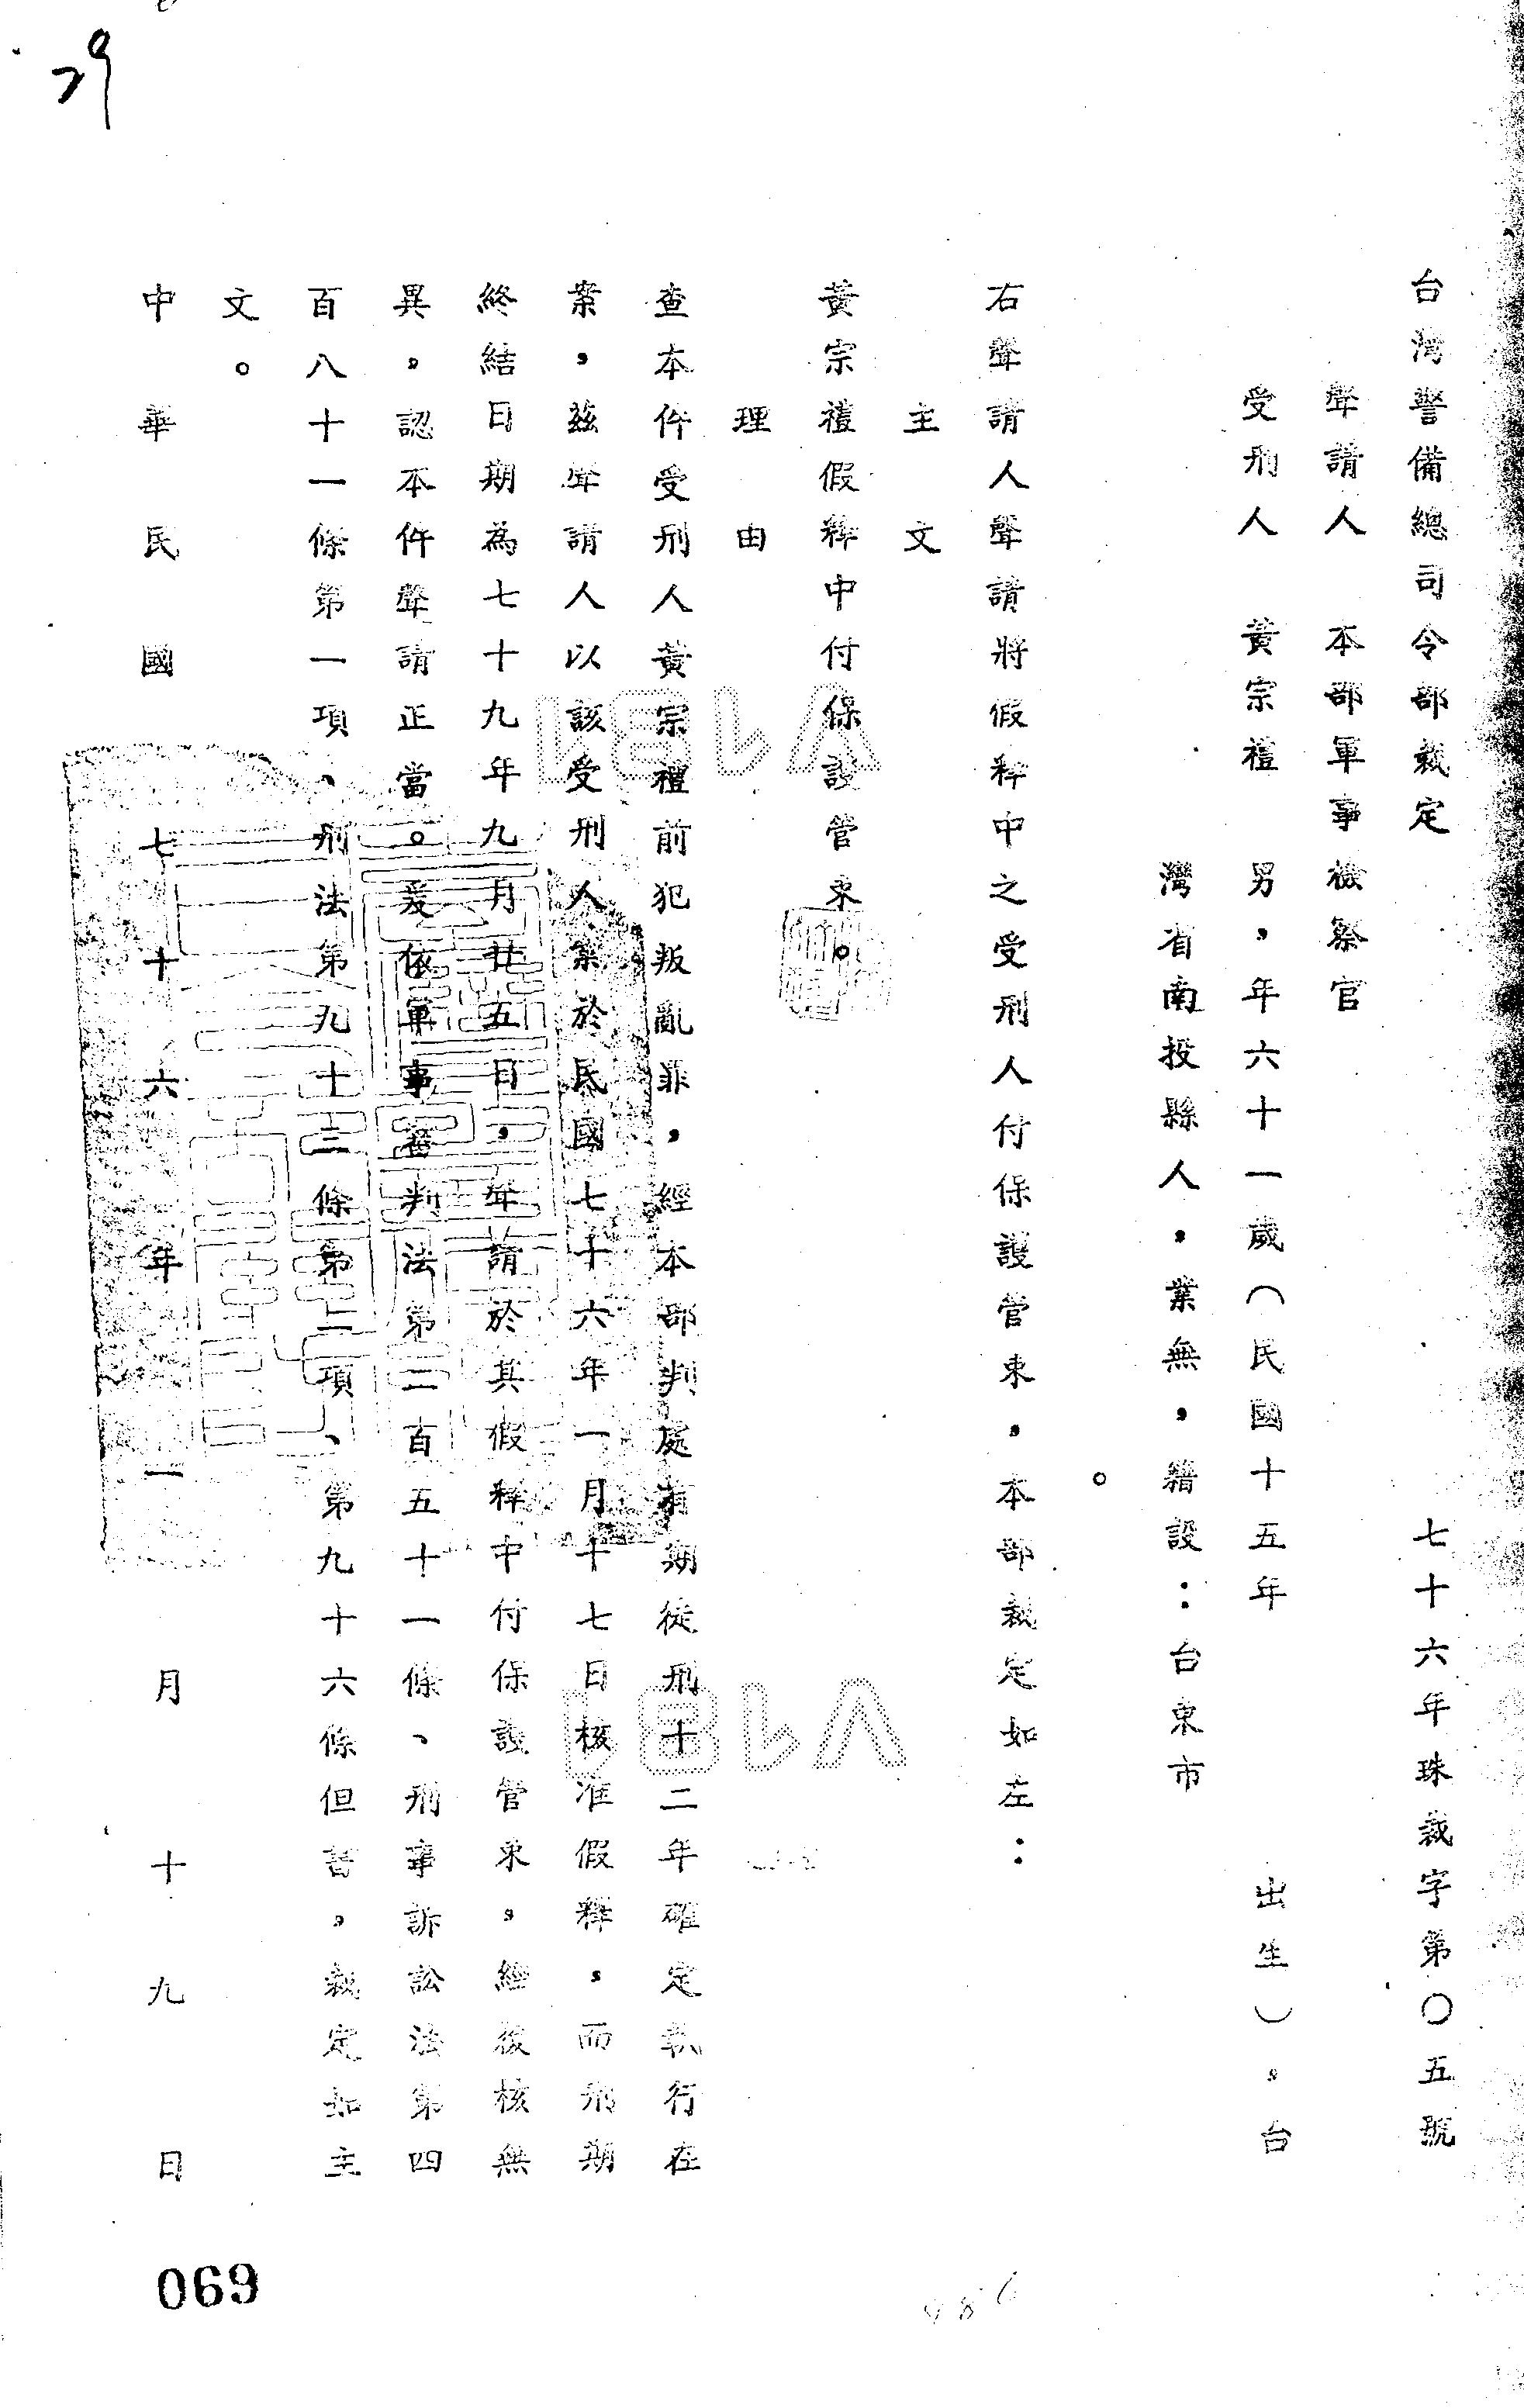 29
台灣警備總司令部裁定　　七十六年珠裁字第〇五號
聲請人　本部軍事檢察官
受刑人　黃宗禮　男，年六十一歲（民國十五年　　出生），台
灣省南投縣人，業無，籍設：台東市
。
右聲請人聲請將假釋中之受刑人付保護管束，本部裁定如左：
主文
黃宗禮假釋中付保護管束。
理由
查本件受刑人黃宗禮前犯叛亂罪，經本部判處有期徒刑十二年確定執行在
案，茲聲請人以該受刑人業於民國七十六年一月十七日核准假釋，而刑期
終結日期為七十九年九月廿五日，聲請於其假釋中付保護管束，經核無
異，認本件聲請正當。爰依軍事審判法第二百五十一條、刑事訴訟法第四
百八十一條第一項、刑法第九十三條第二項、第九十六條但書，裁定如主
文。
中華民國七十六年一月十九日
069